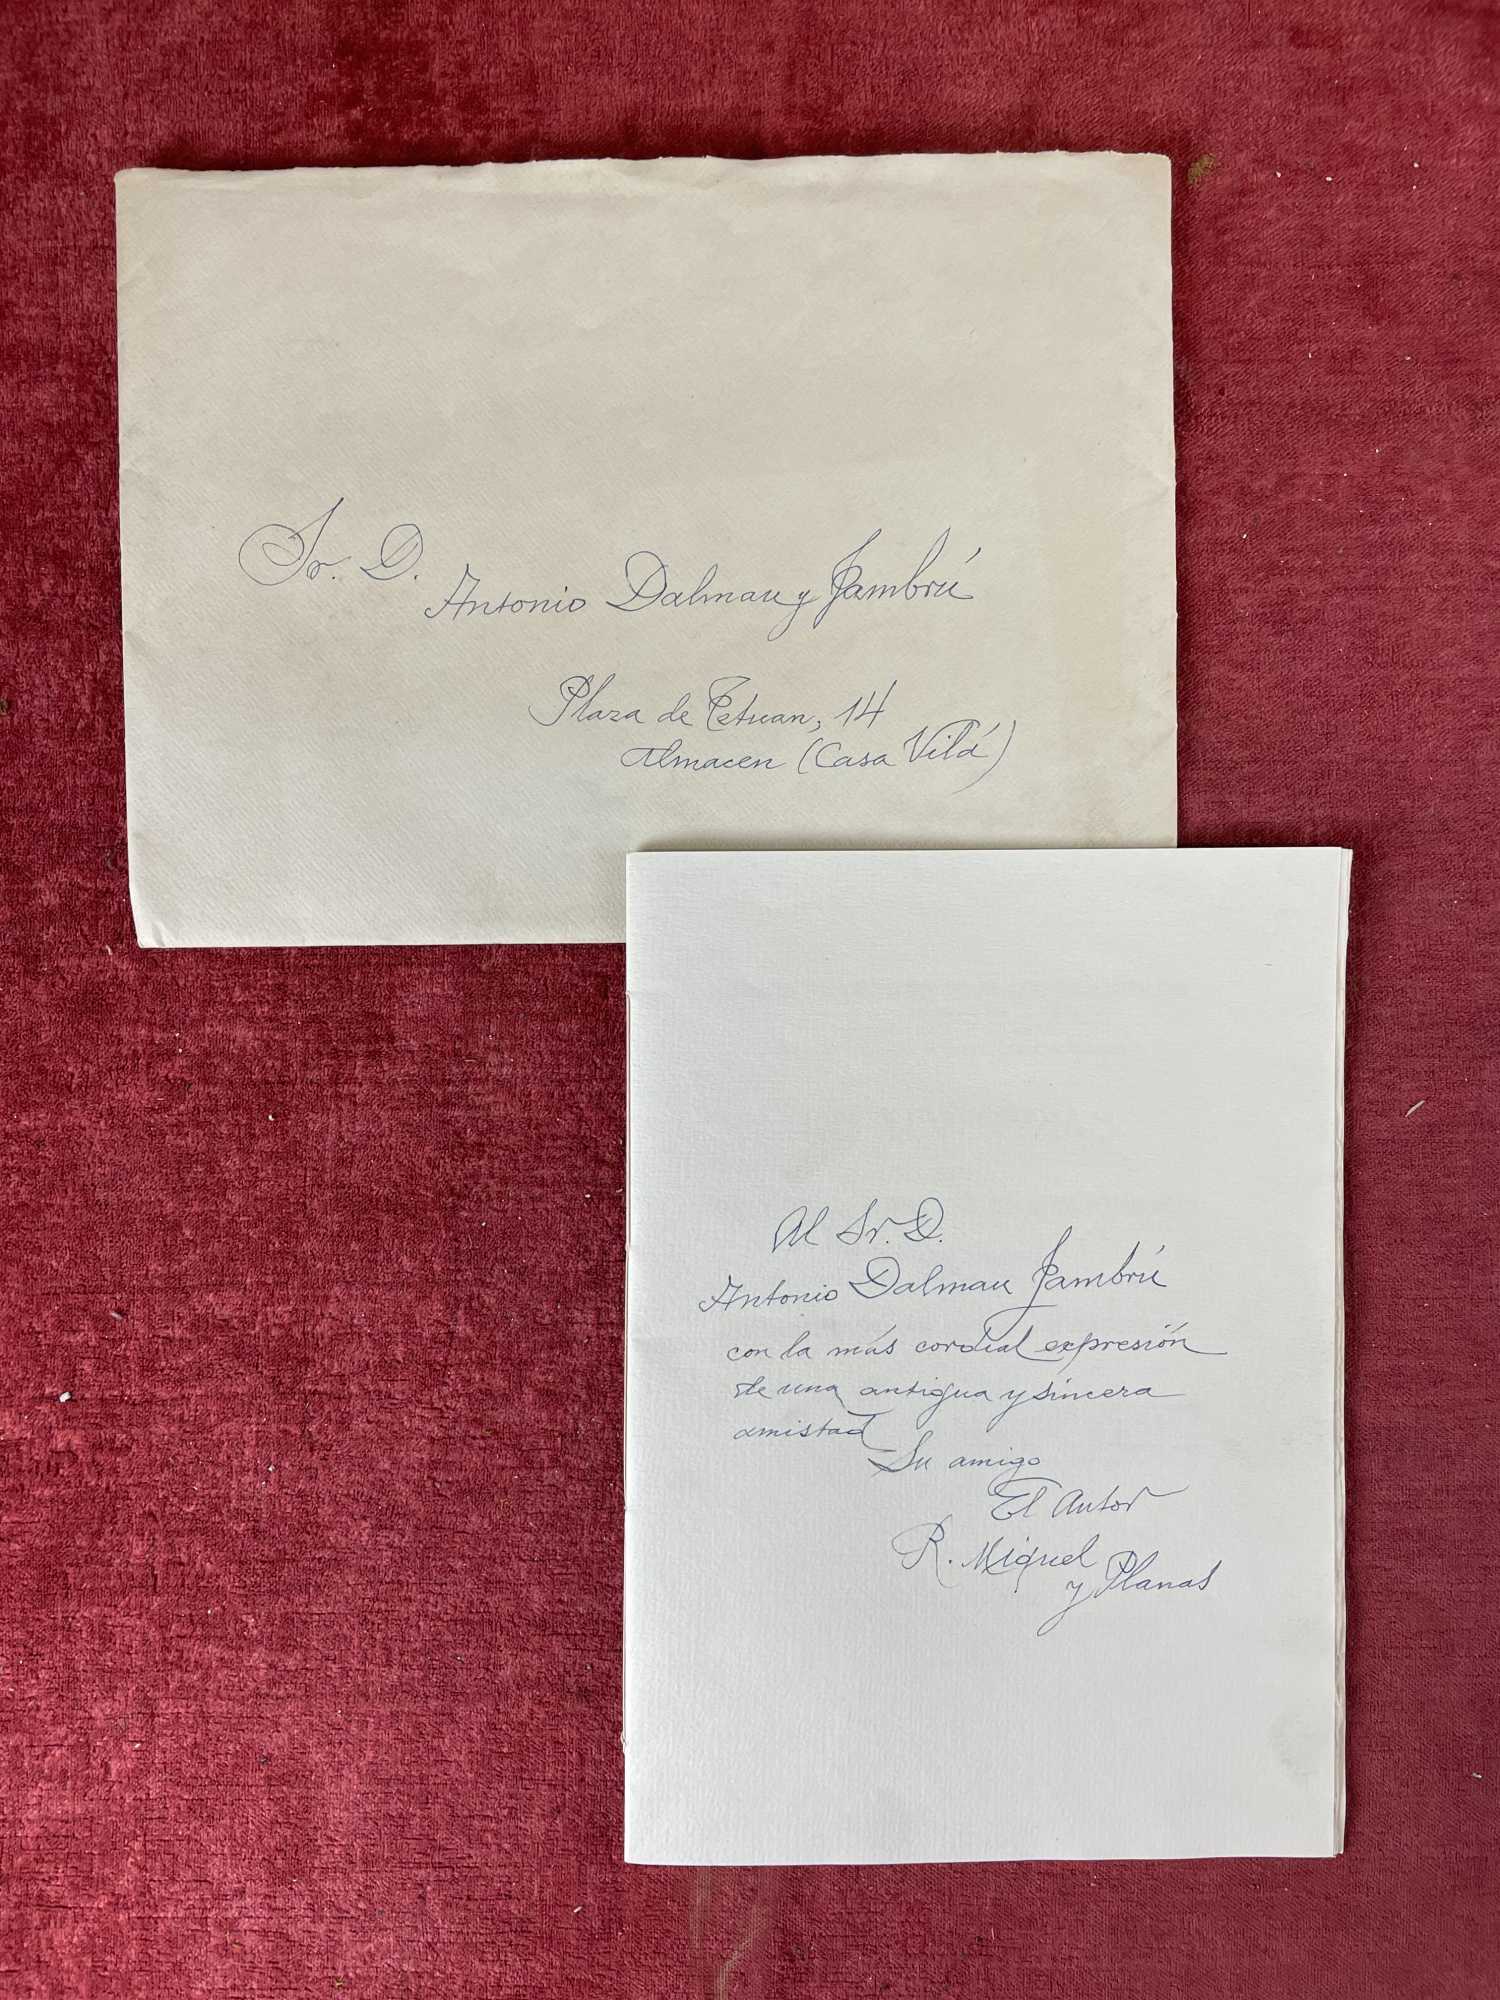 Sr. D.
Antonio Dalmau y Jambrú
Plaza de Tetuan, 14
Almacen (Casa Vilá)
Al Sr. D.
Antonio Dalmau Jambrú
con la más cordial expresión
de una antigua y sincera
amistad
Su amigo
El Autor
R. Miquel
y Planas